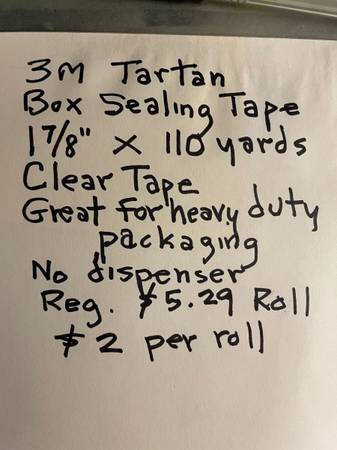 3M Tartan
Box Sealing Tape
1 7/8" x 110 yards
Clear Tape
Great for heavy duty
packaging
No dispenser
Reg. $5.29 Roll
$2 per roll